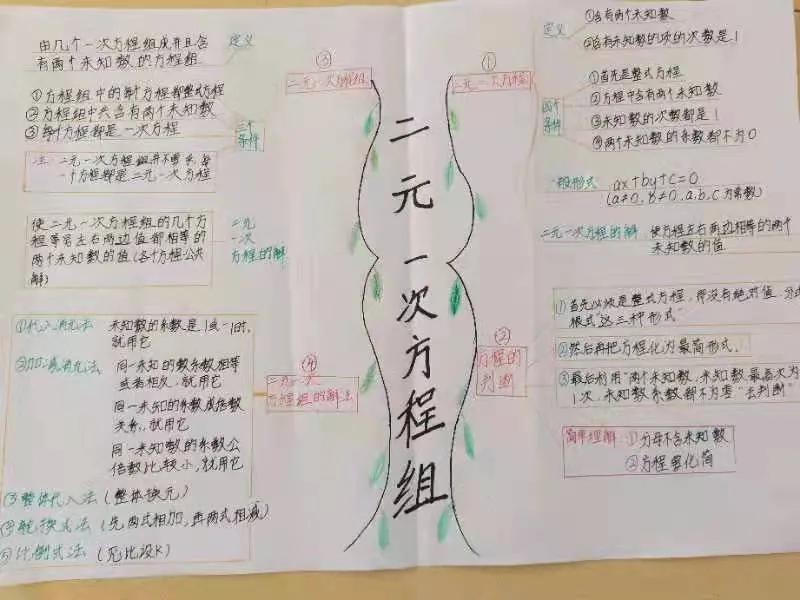 二元一次方程组
①
二元一次方程
定义
①含有两个未知数
②含有未知数的项的次数是1
四个
条件
①首先是整式方程
②方程中含有两个未知数
③未知数的次数都是1
④两个未知数的系数都不为0
一般形式
ax+by+c=0
(a≠0,b≠0,a,b,c为常数)
二元一次方程的解
使方程左右两边相等的两个
未知数的值
②
方程的
判断
①首先必须是整式方程,即没有绝对值、分式
根式"这三种形式"
②然后再把方程化为最简形式.
③最后利用"两个未知数,未知数最高次为
1次,未知数系数都不为零"去判断"
简单理解
①分母不含未知数
②方程要化简
③
二元一次方程组
定义
由几个一次方程组成并且含
有两个未知数的方程组
三个
条件
①方程组中的每个方程都整式方程
②方程组中共含有两个未知数
③每个方程都是一次方程
注:二元一次方程组并不要求,每
一个方程都是二元一次方程
二元
一次
方程的解
使二元一次方程组的几个方
程等号左右两边值都相等的
两个未知数的值(各个方程公共
解)
④
二元一次
方程组的解法
①代入消元法
未知数的系数是1或-1时,
就用它
②加减消元法
同一未知的数系数相等
或者相反,就用它
同一未知的系数成倍数
关系,就用它
同一未知数的系数公
倍数比较小,就用它
③整体代入法(整体换元)
④轮换式法(先两式相加,再两式相减)
⑤比例式法(见比设K)